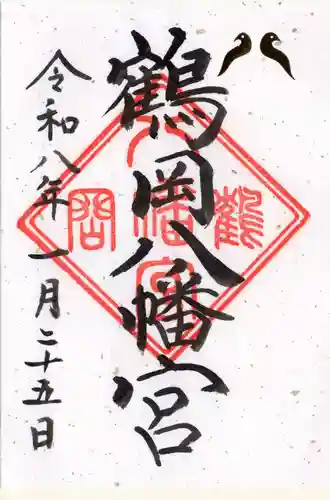 鶴岡八幡宮
令和八年一月二十五日
鶴岡
八幡宮